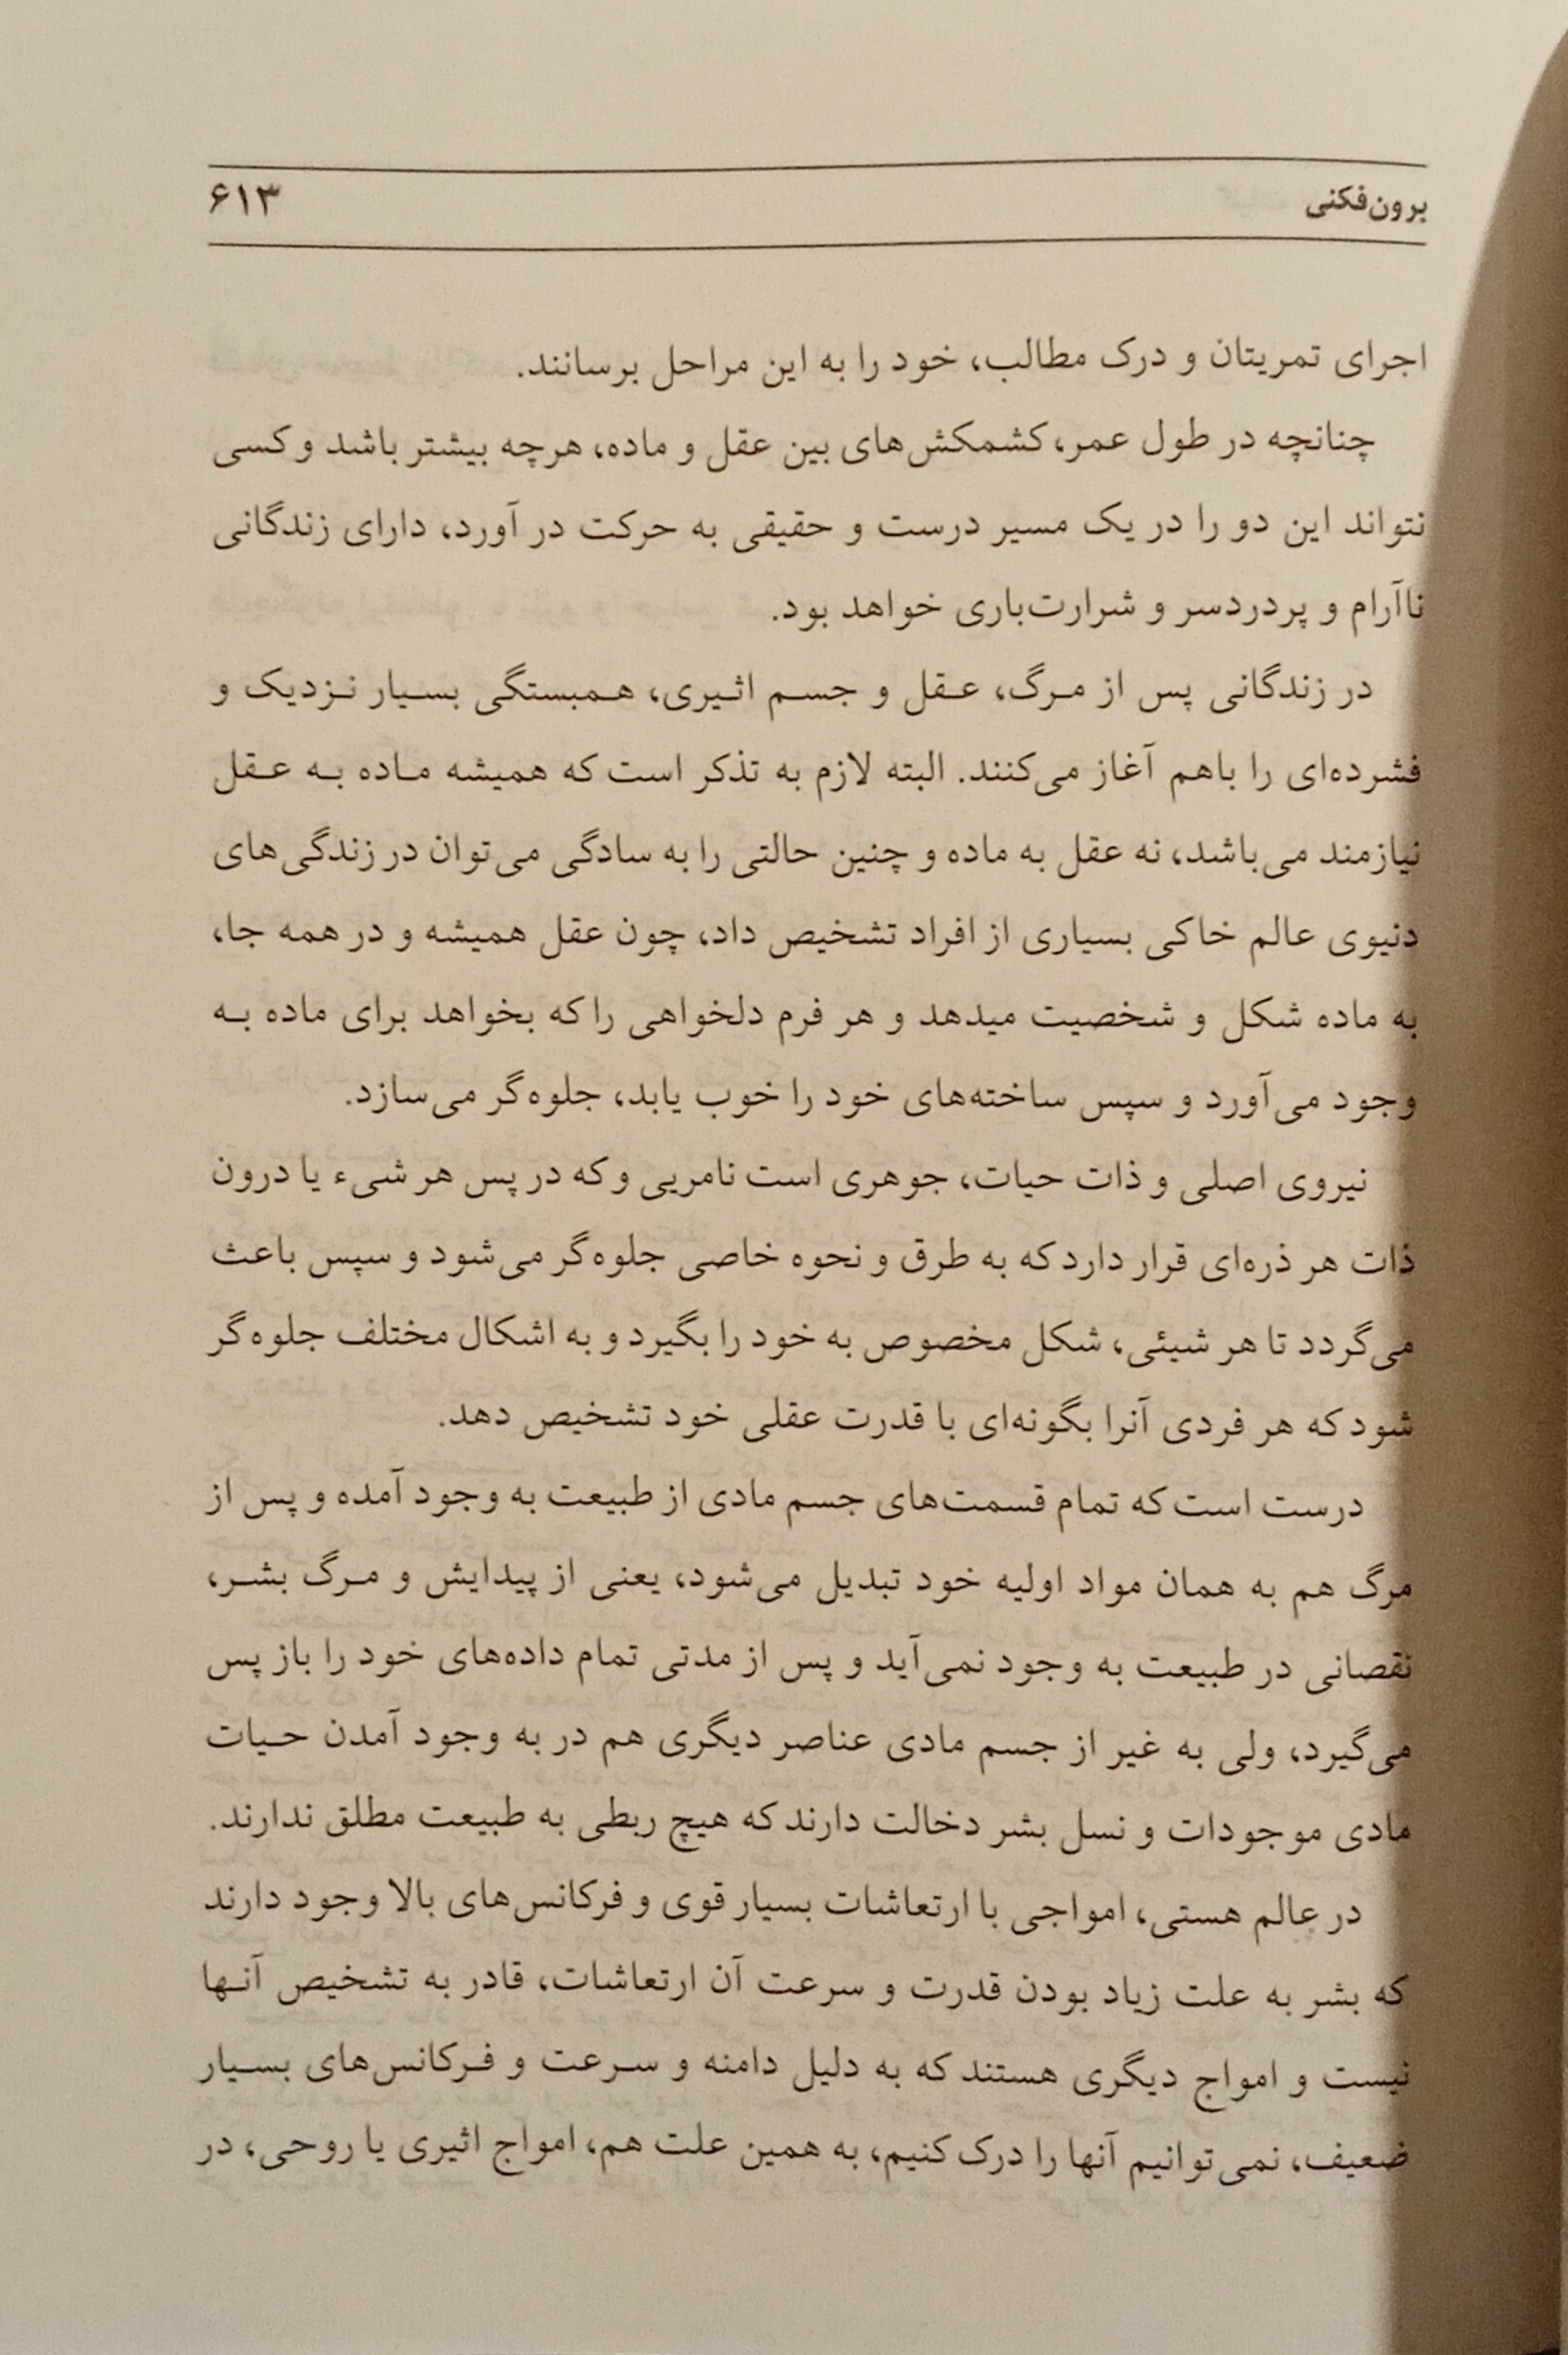 برون‌فکنی ۶۱۳
اجرای تمریتان و درک مطالب، خود را به این مراحل برسانند.
چنانچه در طول عمر، کشمکش‌های بین عقل و ماده، هرچه بیشتر باشد و کسی
نتواند این دو را در یک مسیر درست و حقیقی به حرکت در آورد، دارای زندگانی
ناآرام و پردردسر و شرارت‌باری خواهد بود.
در زندگانی پس از مرگ، عقل و جسم اثیری، همبستگی بسیار نزدیک و
فشرده‌ای را باهم آغاز می‌کنند. البته لازم به تذکر است که همیشه ماده به عقل
نیازمند می‌باشد، نه عقل به ماده و چنین حالتی را به سادگی می‌توان در زندگی‌های
دنیوی عالم خاکی بسیاری از افراد تشخیص داد، چون عقل همیشه و در همه جا،
به ماده شکل و شخصیت میدهد و هر فرم دلخواهی را که بخواهد برای ماده به
وجود می‌آورد و سپس ساخته‌های خود را خوب یابد، جلوه‌گر می‌سازد.
نیروی اصلی و ذات حیات، جوهری است نامریی و که در پس هر شیء یا درون
ذات هر ذره‌ای قرار دارد که به طرق و نحوه خاصی جلوه‌گر می‌شود و سپس باعث
می‌گردد تا هر شیئی، شکل مخصوص به خود را بگیرد و به اشکال مختلف جلوه‌گر
شود که هر فردی آنرا بگونه‌ای با قدرت عقلی خود تشخیص دهد.
درست است که تمام قسمت‌های جسم مادی از طبیعت به وجود آمده و پس از
مرگ هم به همان مواد اولیه خود تبدیل می‌شود، یعنی از پیدایش و مرگ بشر،
نقصانی در طبیعت به وجود نمی‌آید و پس از مدتی تمام داده‌های خود را باز پس
می‌گیرد، ولی به غیر از جسم مادی عناصر دیگری هم در به وجود آمدن حیات
مادی موجودات و نسل بشر دخالت دارند که هیچ ربطی به طبیعت مطلق ندارند.
در عالم هستی، امواجی با ارتعاشات بسیار قوی و فرکانس‌های بالا وجود دارند
که بشر به علت زیاد بودن قدرت و سرعت آن ارتعاشات، قادر به تشخیص آنها
نیست و امواج دیگری هستند که به دلیل دامنه و سرعت و فرکانس‌های بسیار
ضعیف، نمی‌توانیم آنها را درک کنیم، به همین علت هم، امواج اثیری یا روحی، در